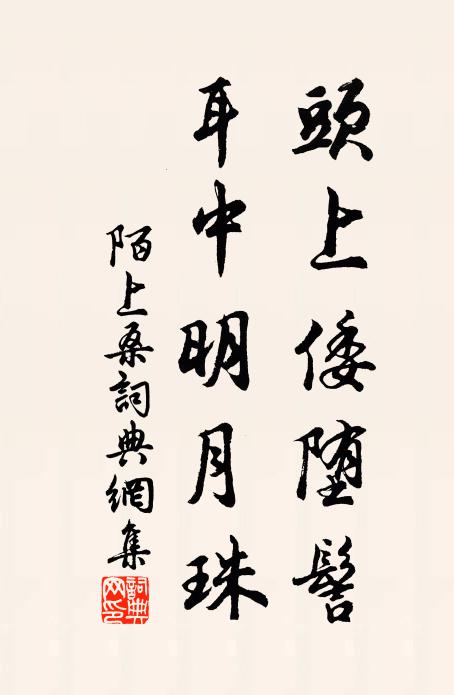 頭上倭堕髻
耳中明月珠
陌上桑詞典網集
詞典网印